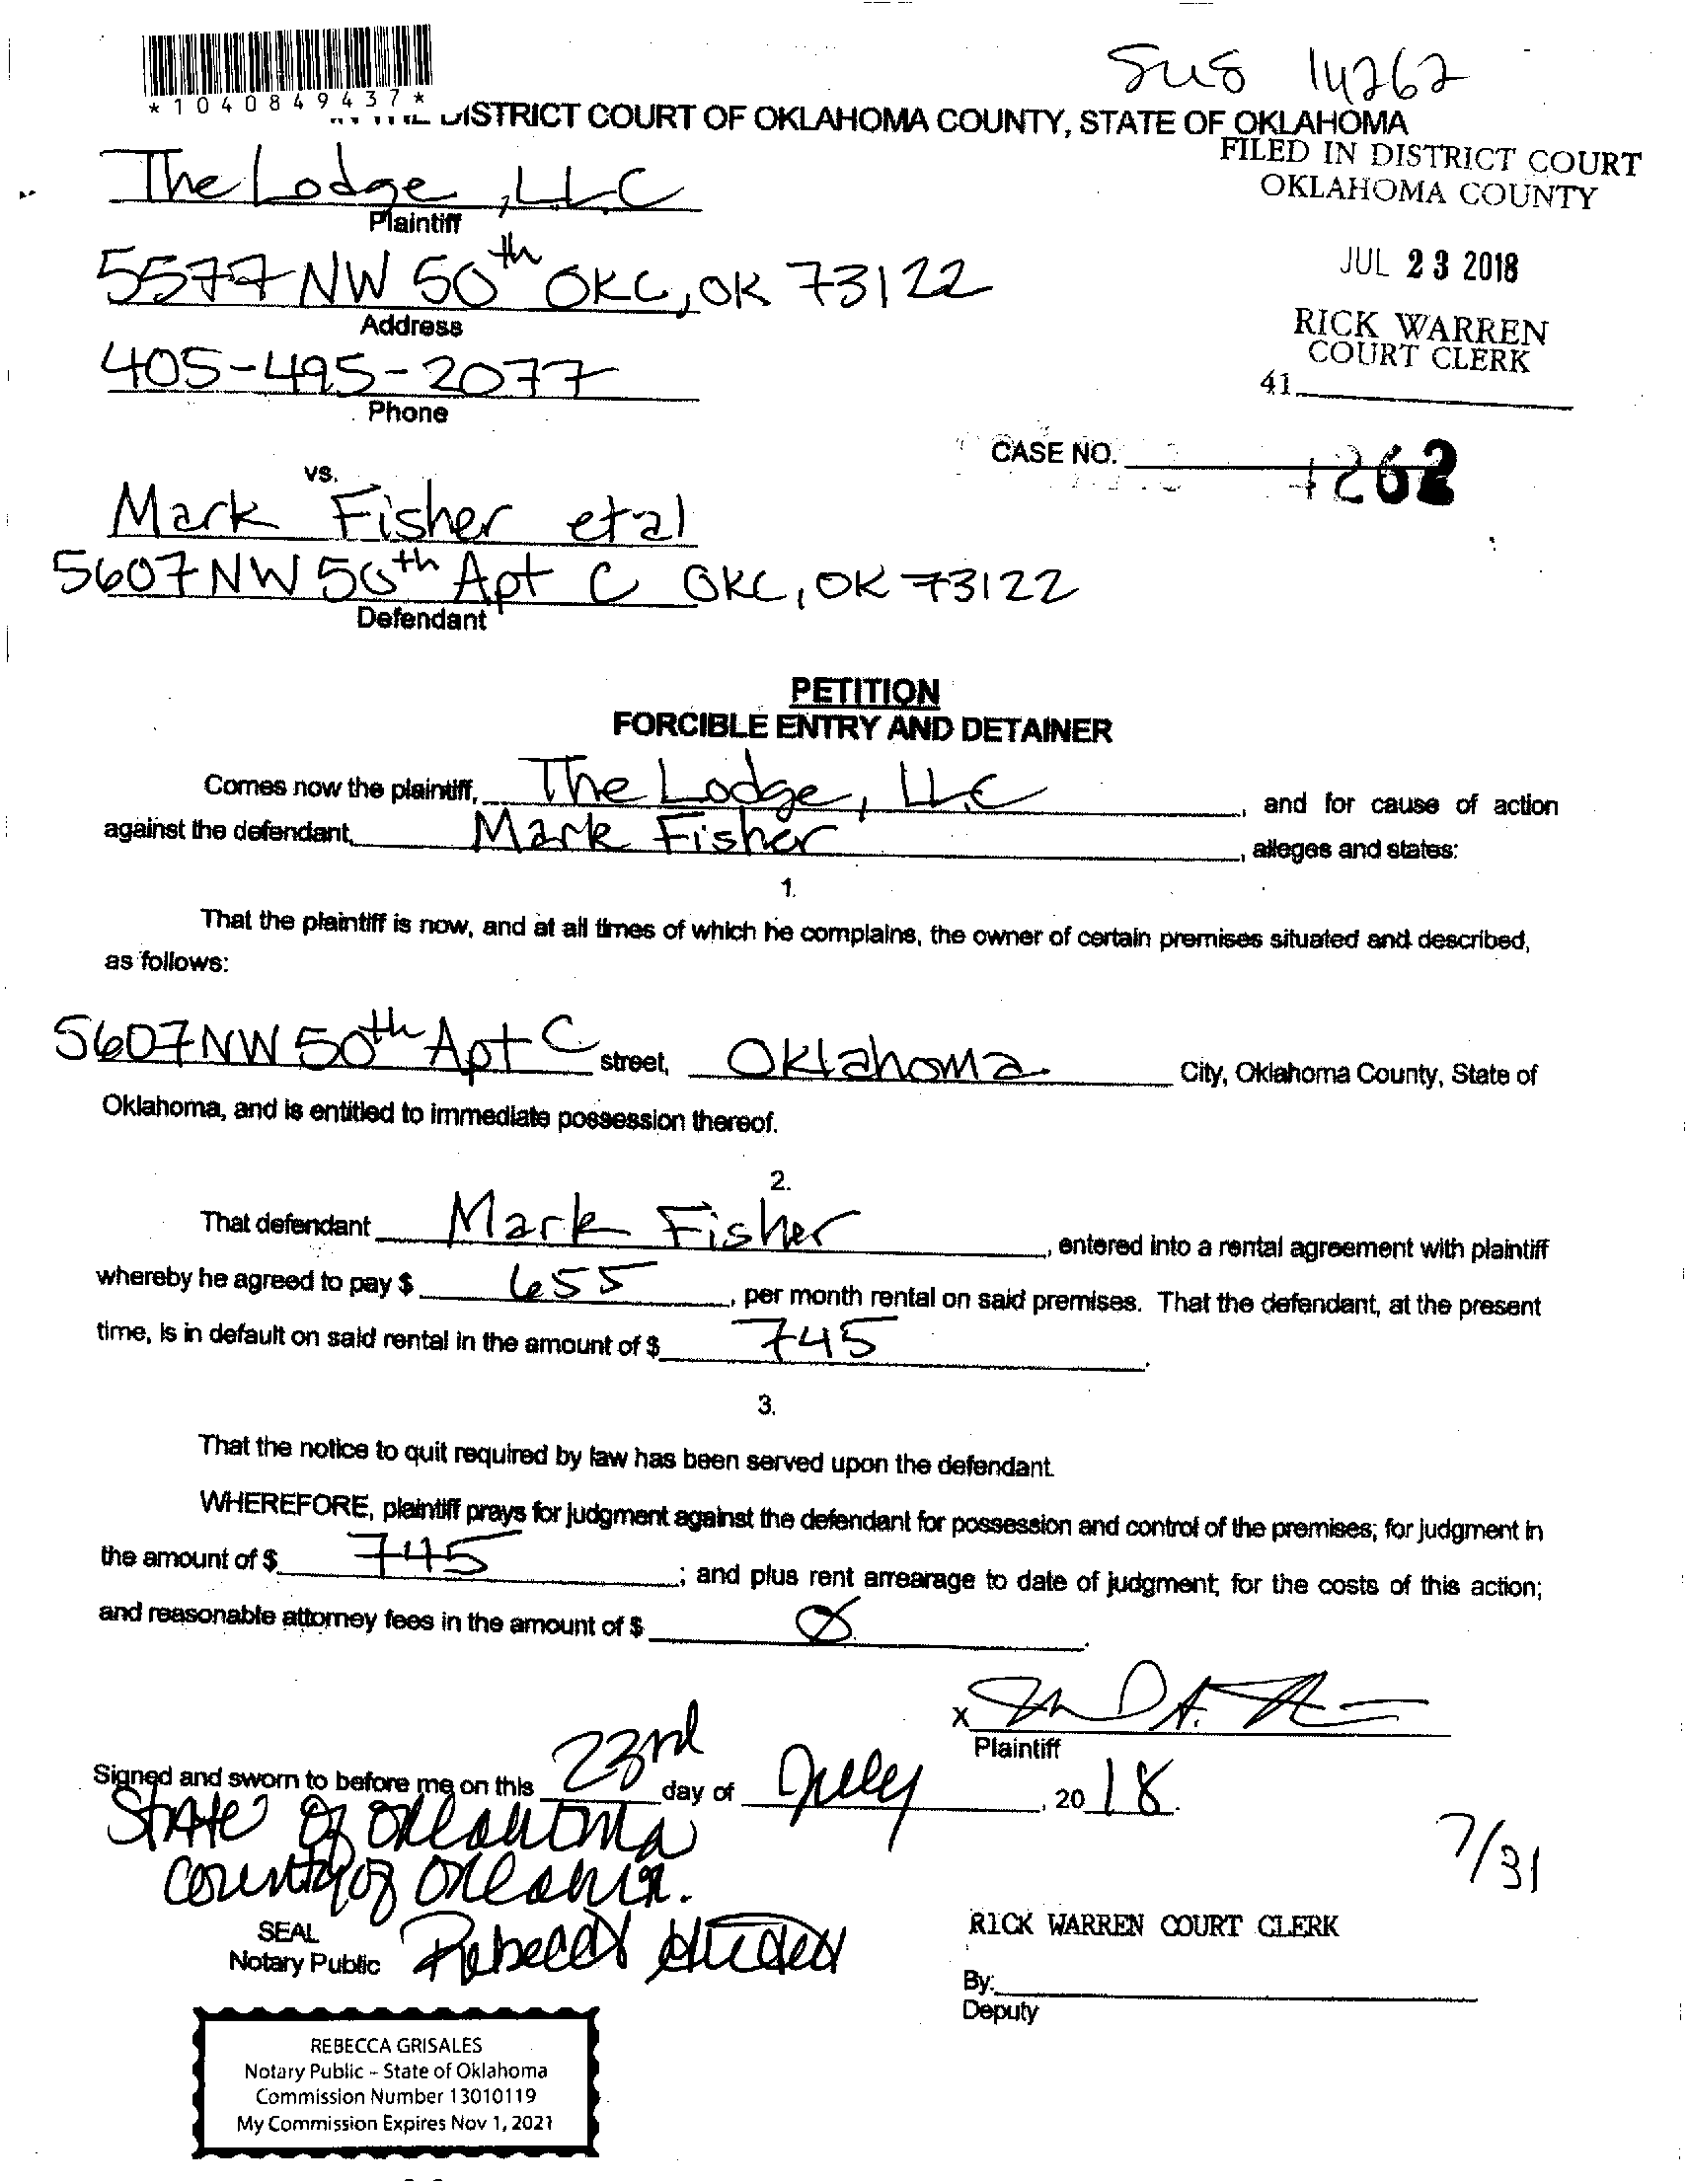 *1040849437*
SUS 14262
DISTRICT COURT OF OKLAHOMA COUNTY, STATE OF OKLAHOMA
FILED IN DISTRICT COURT
OKLAHOMA COUNTY
The Lodge, LLC
Plaintiff
JUL 23 2018
5577 NW 50th OKC, OK 73122
Address
RICK WARREN
COURT CLERK
405-495-2077
Phone
41
CASE NO. 262
vs.
Mark Fisher etal
5607 NW 50th Apt C OKC, OK 73122
Defendant
PETITION
FORCIBLE ENTRY AND DETAINER
Comes now the plaintiff, The Lodge, LLC, and for cause of action
against the defendant, Mark Fisher, alleges and states:
1.
That the plaintiff is now, and at all times of which he complains, the owner of certain premises situated and described,
as follows:
5607 NW 50th Apt C street, Oklahoma City, Oklahoma County, State of
Oklahoma, and is entitled to immediate possession thereof.
2.
That defendant Mark Fisher, entered into a rental agreement with plaintiff
whereby he agreed to pay $ 655, per month rental on said premises. That the defendant, at the present
time, is in default on said rental in the amount of $ 745.
3.
That the notice to quit required by law has been served upon the defendant.
WHEREFORE, plaintiff prays for judgment against the defendant for possession and control of the premises; for judgment in
the amount of $ 745; and plus rent arrearage to date of judgment; for the costs of this action;
and reasonable attorney fees in the amount of $ Ø.
X
Plaintiff
Signed and sworn to before me on this 23rd day of July, 2018.
State of Oklahoma
County of
7/31
SEAL
Notary Public Rebecca
RICK WARREN COURT CLERK
By:
Deputy
REBECCA GRISALES
Notary Public - State of Oklahoma
Commission Number 13010119
My Commission Expires Nov 1, 2021